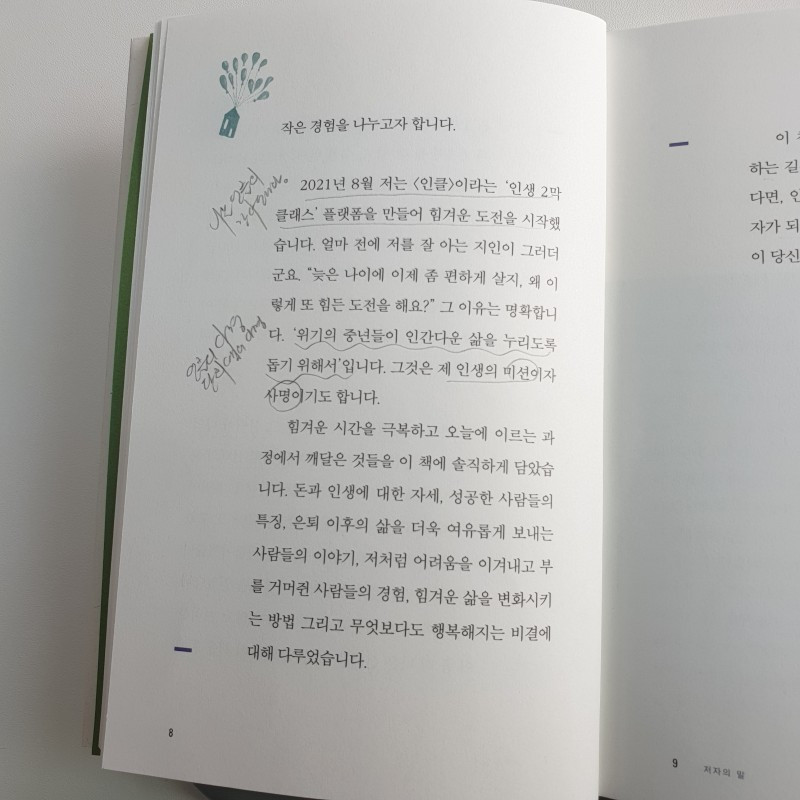 작은 경험을 나누고자 합니다.
2021년 8월 저는 〈인클〉이라는 ‘인생 2막
클래스’ 플랫폼을 만들어 힘겨운 도전을 시작했
습니다. 얼마 전에 저를 잘 아는 지인이 그러더
군요. “늦은 나이에 이제 좀 편하게 살지, 왜 이
렇게 또 힘든 도전을 해요?” 그 이유는 명확합니
다. ‘위기의 중년들이 인간다운 삶을 누리도록
돕기 위해서’입니다. 그것은 제 인생의 미션이자
사명이기도 합니다.
힘겨운 시간을 극복하고 오늘에 이르는 과
정에서 깨달은 것들을 이 책에 솔직하게 담았습
니다. 돈과 인생에 대한 자세, 성공한 사람들의
특징, 은퇴 이후의 삶을 더욱 여유롭게 보내는
사람들의 이야기, 저처럼 어려움을 이겨내고 부
를 거머쥔 사람들의 경험, 힘겨운 삶을 변화시키
는 방법 그리고 무엇보다도 행복해지는 비결에
대해 다루었습니다.
8
이
하는 길
다면, 인
자가 되
이 당신
9 저자의 말